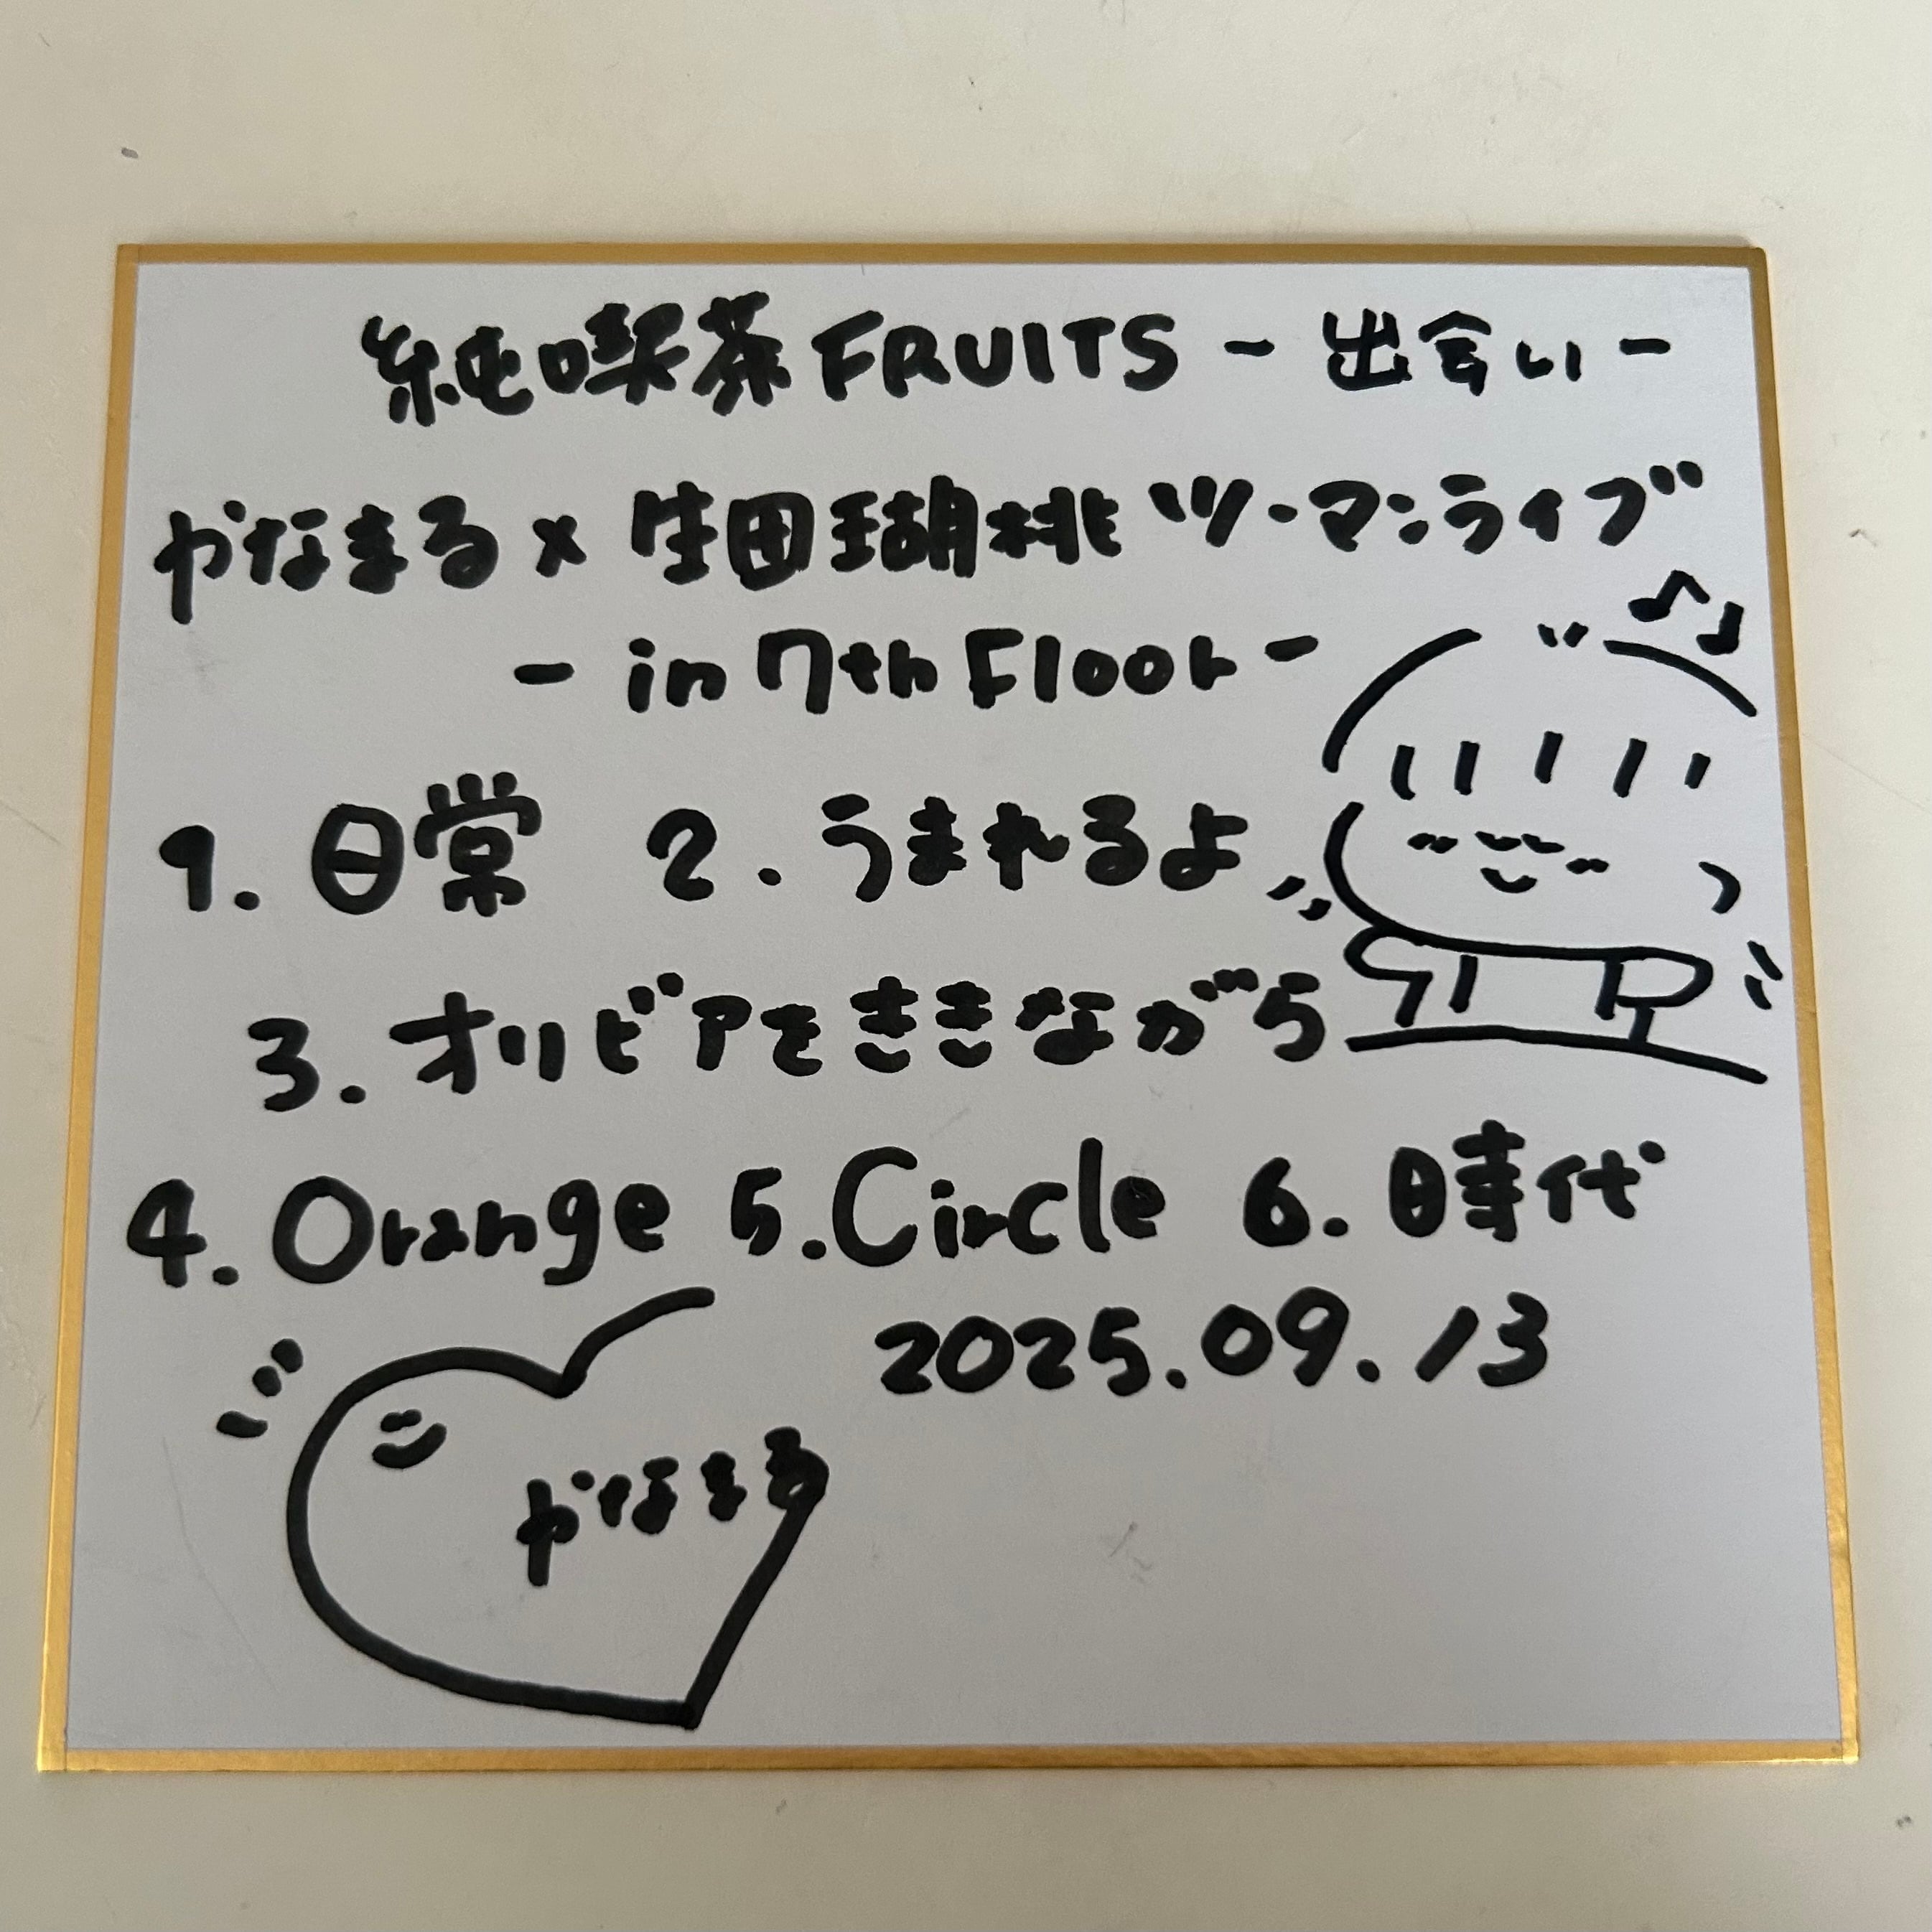 純喫茶FRUITS - 出会い -
かなまる × 生田瑚桃 ツーマンライブ
- in 7th Floor -
1. 日常 2. うまれるよ
3. オリビアをききながら
4. Orange 5. Circle 6. 時代
2025.09.13
かなまる